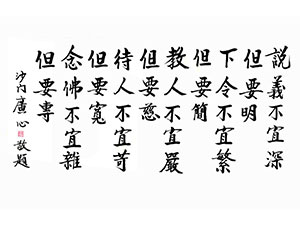 說義不宜深
但要明
下令不宜繁
但要簡
教人不宜嚴
但要慈
待人不宜苛
但要寬
念佛不宜雜
但要專
沙门廣心敬題